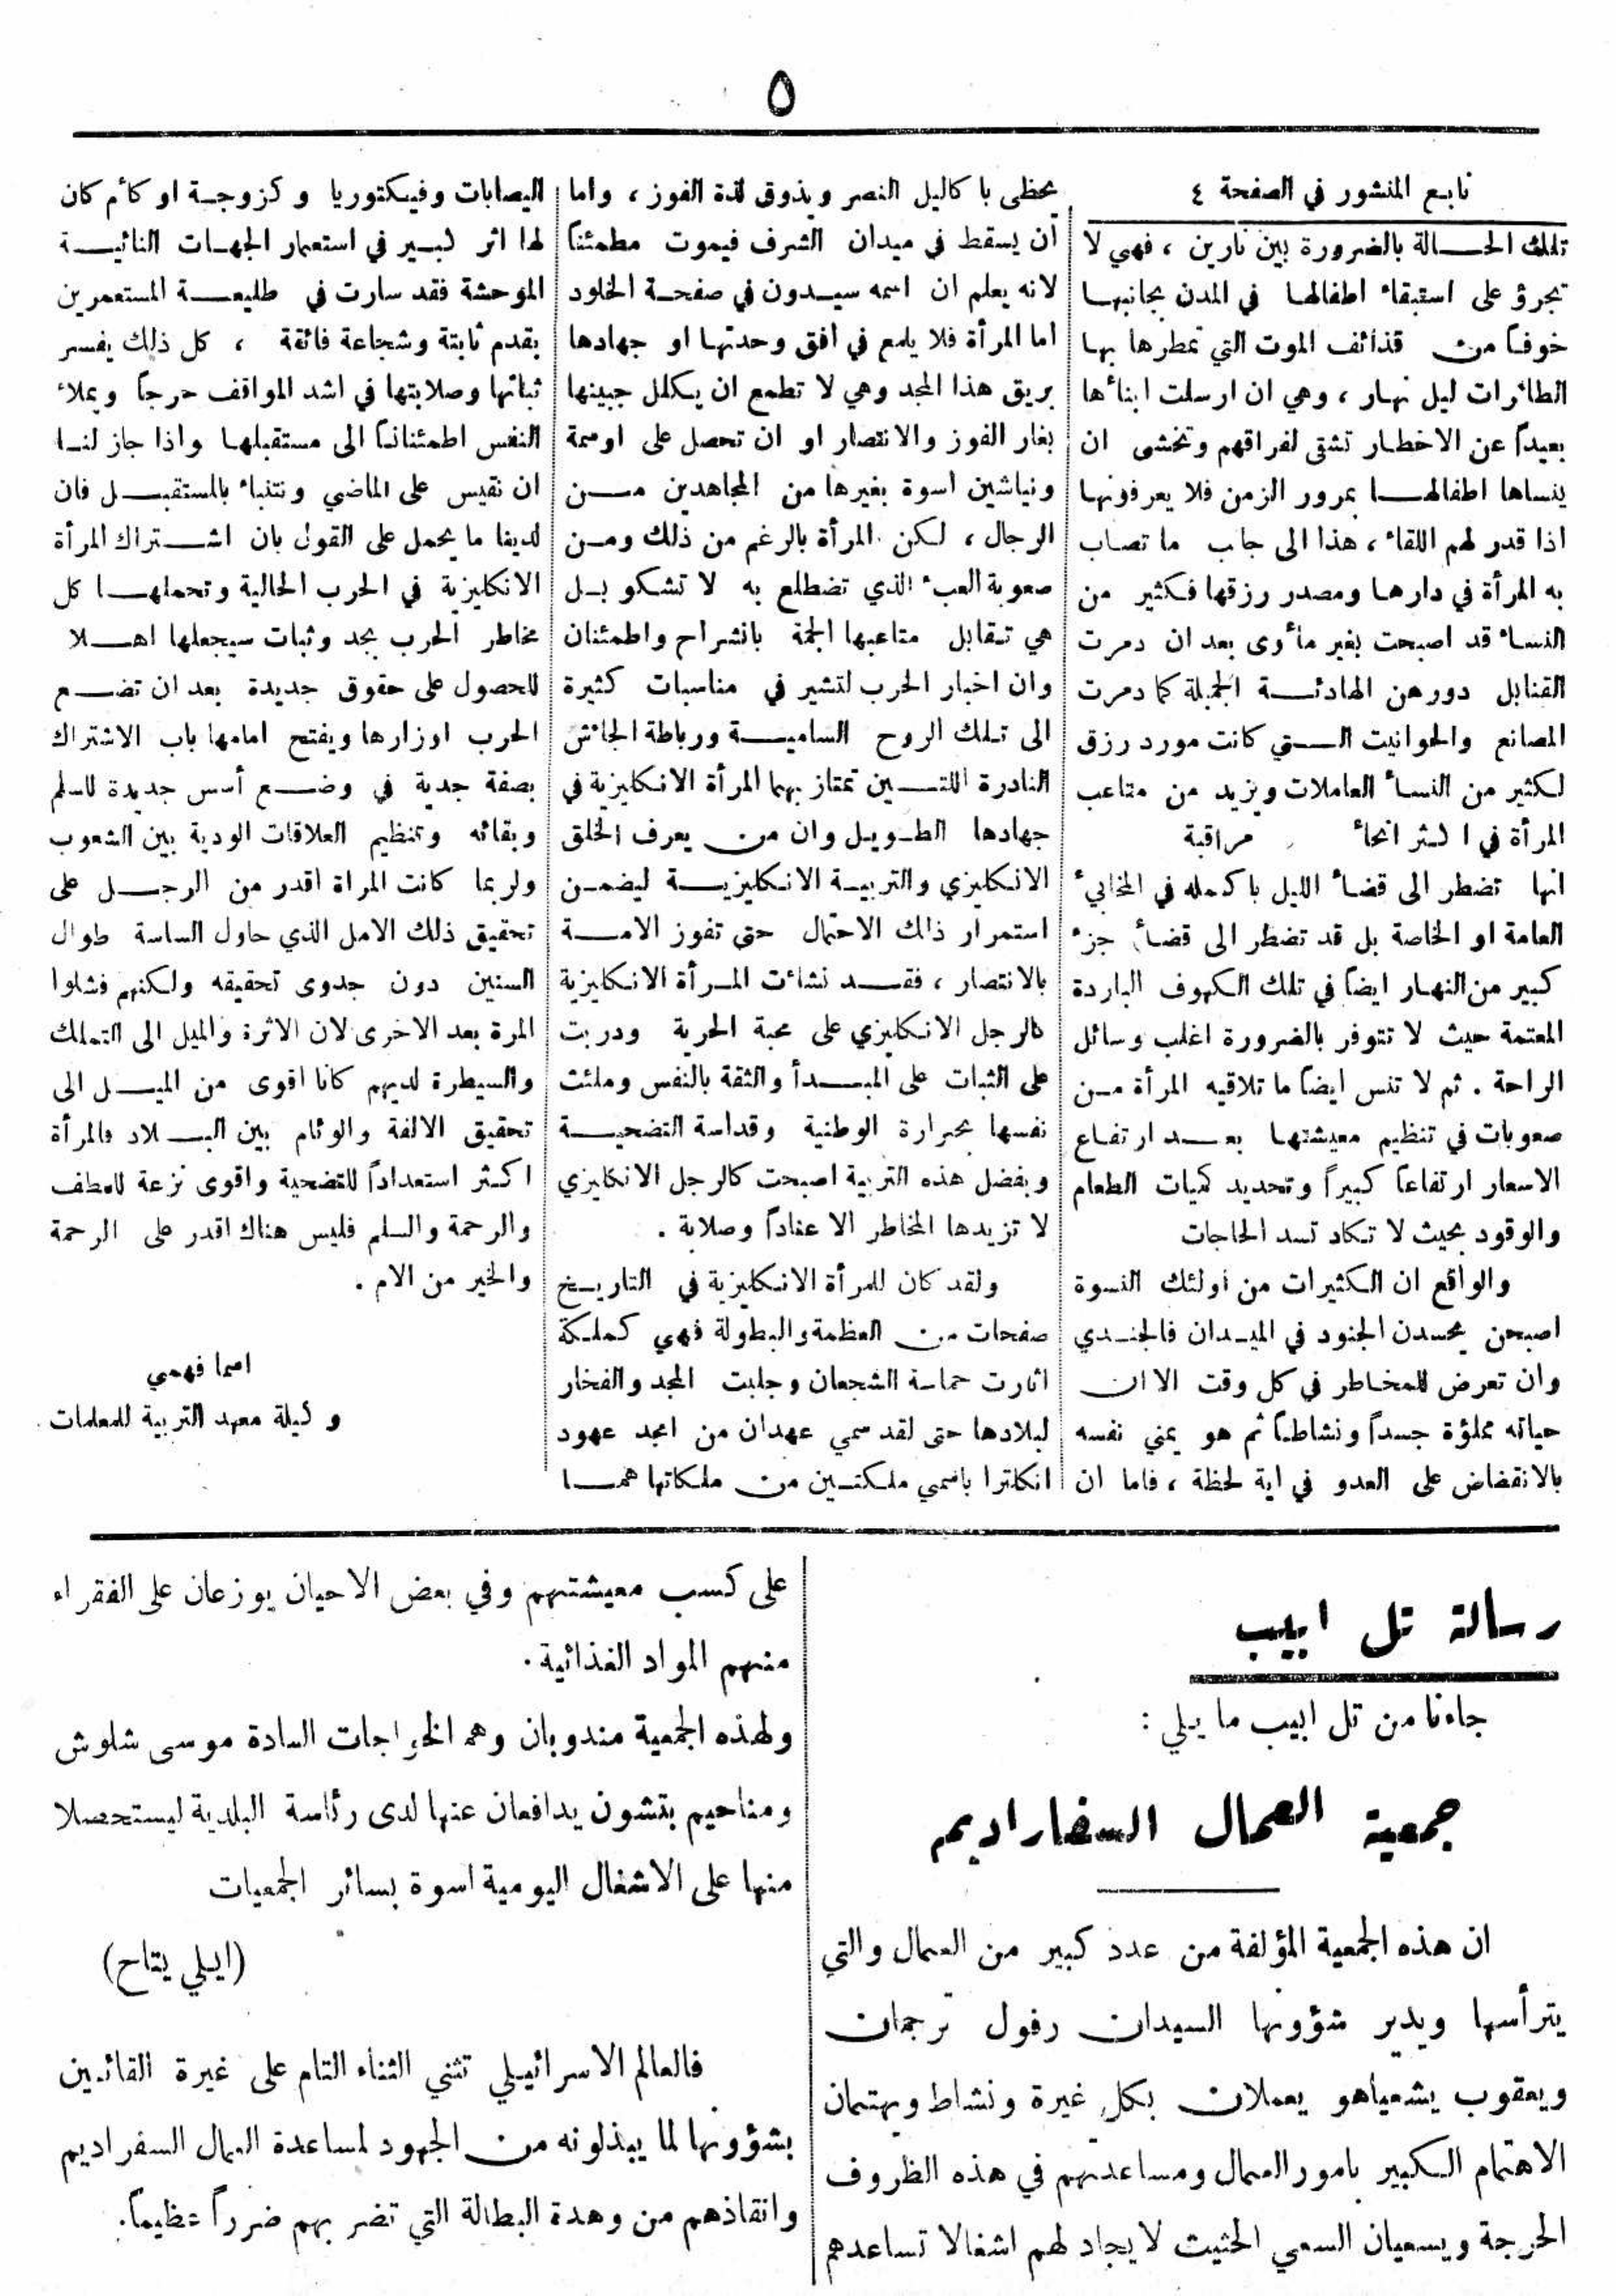 ٥
تابع المنشور في الصفحة ٤
تلك الحالة بالضرورة بين نارين ، فهي لا
تجرؤ على استبقاء اطفالها في المدن بجانبها
خوفاً من قذائف الموت التي تمطرها بها
الطائرات ليل نهار ، وهي ان ارسلت ابنأها
بعيداً عن الاخطار تشقى لفراقهم وتخشى ان
ينساها اطفالها بمرور الزمن فلا يعرفونها
اذا قدر لهم اللقاء ، هذا الى جاب ما تصاب
به المرأة في دارها ومصدر رزقها فكثير من
النساء قد اصبحت بغير مأوى بعد ان دمرت
القنابل دورهن الهادئة الجميلة كما دمرت
المصانع والحوانيت التي كانت مورد رزق
لكثير من النسأ العاملات ويزيد من متاعب
المرأة في اكثر انحاء مراقبة
انها تضطر الى قضأ الليل باكمله في المخابيء
العامة او الخاصة بل قد تضطر الى قضأ جزء
كبير من النهار ايضاً في تلك الكهوف الباردة
المعتمة حيث لا تتوفر بالضرورة اغلب وسائل
الراحة . ثم لا تنس ايضاً ما تلاقيه المرأة من
صعوبات في تنظيم معيشتها بعد ارتفاع
الاسعار ارتفاعاً كبيراً وتحديد كميات الطعام
والوقود بحيث لا تكاد تسد الحاجات
والواقع ان الكثيرات من اولئك النسوة
اصبحن يحسدن الجنود في الميدان فالجندي
وان تعرض للمخاطر في كل وقت الا ان
حياته مملؤة جسداً ونشاطاً ثم هو يمني نفسه
بالانقضاض على العدو في اية لحظة ، فاما ان
يحظى با كاليل النصر ويذوق لذة الفوز ، واما
ان يسقط في ميدان الشرف فيموت مطمئناً
لانه يعلم ان اسمه سيدون في صفحة الخلود
اما المرأة فلا يلمع في افق وحدتها او جهادها
بريق هذا المجد وهي لا تطمع ان يكلل جبينها
بغار الفوز والانتصار او ان تحصل على اوسمة
ونياشين اسوة بغيرها من المجاهدين من
الرجال ، لكن المرأة بالرغم من ذلك ومن
صعوبة العبء الذي تضطلع به لا تشكو بل
هي تقابل متاعبها الجمة بانشراح واطمئنان
وان اخبار الحرب لتشير في مناسبات كثيرة
الى تلك الروح السامية ورباطة الجائش
النادرة اللتين تمتاز بهما المرأة الانكليزية في
جهادها الطويل وان من يعرف الخلق
الانكليزي والتربية الانكليزية ليضمن
استمرار ذاك الاحتمال حتى تفوز الامة
بالانتصار ، فقد نشأت المرأة الانكليزية
كالرجل الانكليزي على محبة الحرية ودربت
على الثبات على المبدأ والثقة بالنفس وملئت
نفسها بحرارة الوطنية وقداسة التضحية
وبفضل هذه التربية اصبحت كالرجل الانكليزي
لا تزيدها المخاطر الا عناداً وصلابة .
ولقد كان للمرأة الانكليزية في التاريخ
صفحات من العظمة والبطولة فهي كملكة
اثارت حماسة الشجعان وجلبت المجد والفخار
لبلادها حتى لقد سمي عهدان من امجد عهود
انكلترا باسمي ملكتين من ملكاتها هما
اليصابات وفيكتوريا وكزوجة او كأم كان
لها اثر كبير في استعمار الجهات النائية
الموحشة فقد سارت في طليعة المستعمرين
بقدم ثابتة وشجاعة فائقة ، كل ذلك يفسر
ثباتها وصلابتها في اشد المواقف حرجاً ويملاء
النفس اطمئناناً الى مستقبلها واذا جاز لنا
ان نقيس على الماضي ونتنباء بالمستقبل فان
لدينا ما يحمل على القول بان اشتراك المرأة
الانكليزية في الحرب الحالية وتحملها كل
مخاطر الحرب بجد وثبات سيجعلها اهلا
للحصول على حقوق جديدة بعد ان تضع
الحرب اوزارها ويفتح امامها باب الاشتراك
بصفة جدية في وضع أسس جديدة للسلم
وبقائه وتنظيم العلاقات الودية بين الشعوب
ولربما كانت المراة اقدر من الرجل على
تحقيق ذلك الامل الذي حاول الساسة طوال
السنين دون جدوى تحقيقه ولكنهم فشلوا
المرة بعد الاخرى لان الاثرة والميل الى التملك
والسيطرة لديهم كانا اقوى من الميل الى
تحقيق الالفة والوئام بين البلاد فالمرأة
اكثر استعداداً للتضحية واقوى نزعة للعطف
والرحمة والسلم فليس هناك اقدر على الرحمة
والخير من الام .
اسما فهمي
وكيلة معهد التربية للمعلمات
رسالة تل ابيب
جاءنا من تل ابيب ما يلي :
جمعية العمال السفاراديم
ان هذه الجمعية المؤلفة من عدد كبير من العمال والتي
يترأسها ويدير شؤونها السيدان رفول ترجمان
ويعقوب يشعياهو يعملان بكل غيرة ونشاط ويهتمان
الاهتمام الكبير بامور العمال ومساعدتهم في هذه الظروف
الحرجة ويسعيان السعي الحثيث لايجاد لهم اشغالا تساعدهم
على كسب معيشتهم وفي بعض الاحيان يوزعان على الفقراء
منهم المواد الغذائية .
ولهذه الجمعية مندوبان وهم الخواجات السادة موسى شلوش
ومناحيم بتشون يدافعان عنها لدى رئاسة البلدية ليستحصلا
منها على الاشغال اليومية اسوة بسائر الجمعيات
(ايلي يتاح)
فالعالم الاسرائيلي تثني الثناء التام على غيرة القائمين
بشؤونها لما يبذلونه من الجهود لمساعدة العمال السفراديم
وانقاذهم من وهدة البطالة التي تضر بهم ضرراً عظيماً .